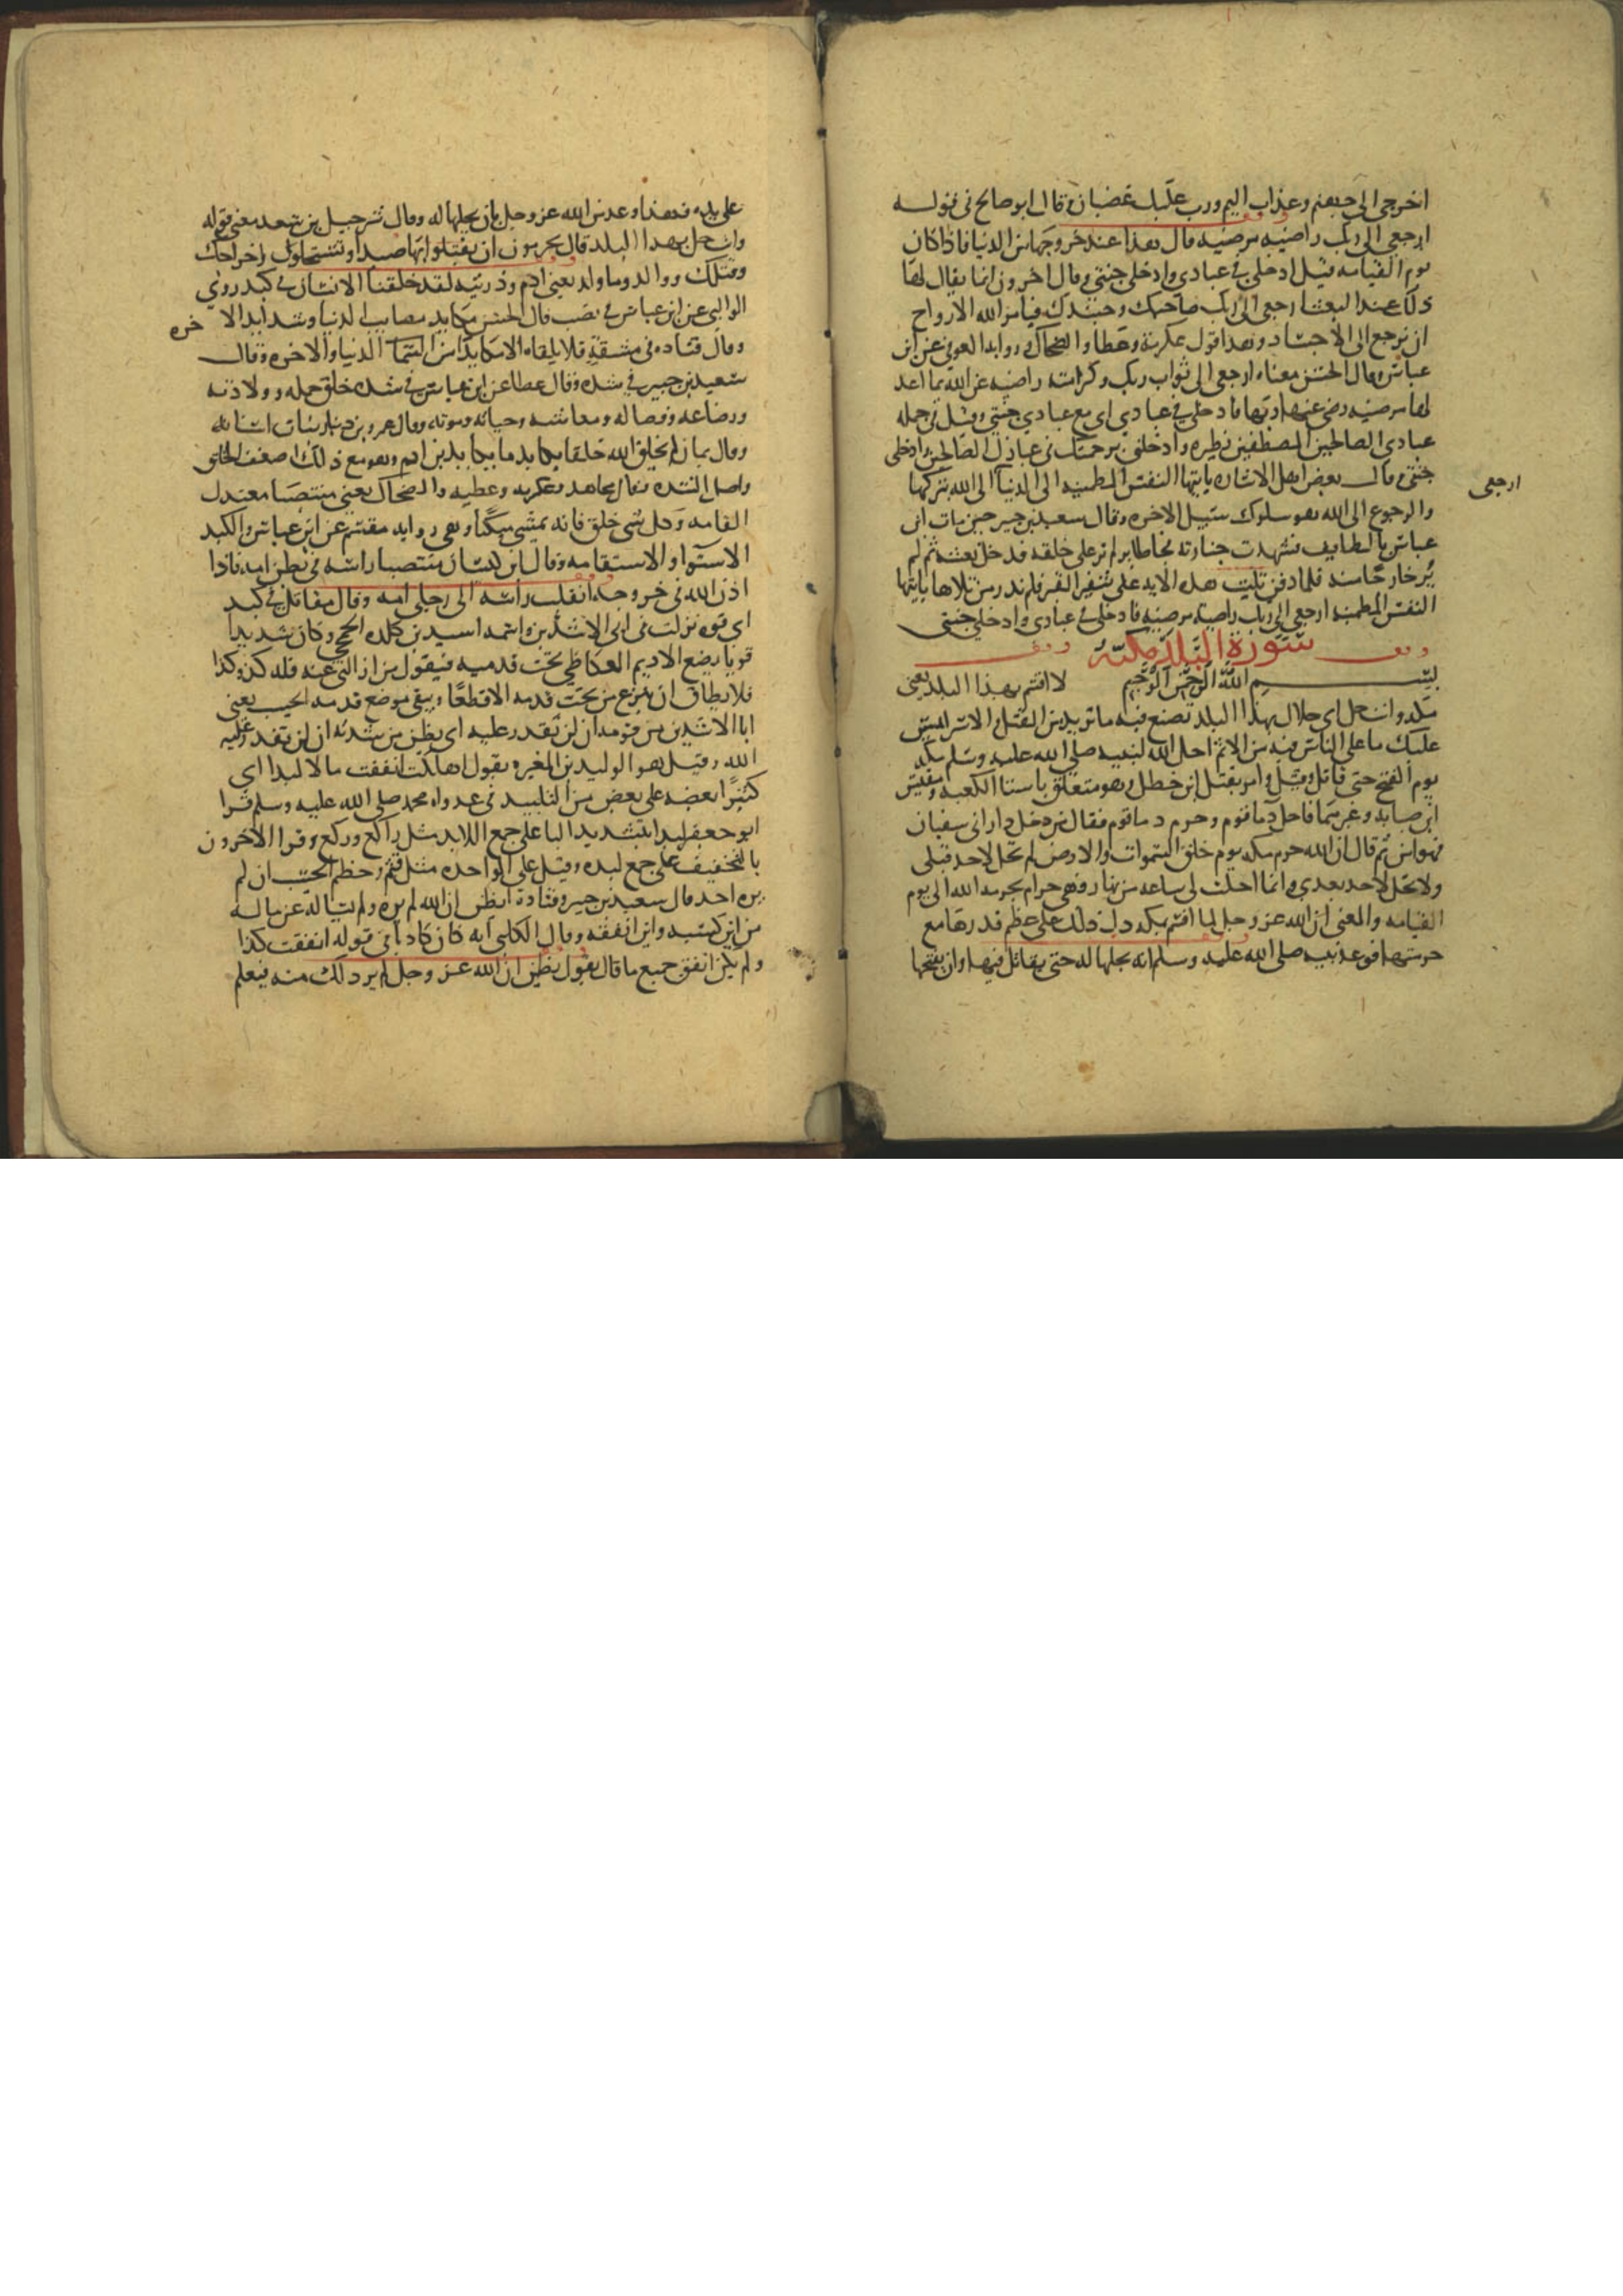 اخرجي الى جهنم وعذاب اليم ورب عليك غضبان وقال ابو صالح في قوله
ارجعي الى ربك راضيه مرضيه قال هذا عند خروجها من الدنيا فاذا كان
يوم القيامه قيل ادخلي في عبادي وادخلي جنتي وقال اخرون انما يقال لها
ذلك عند البعث ارجعي الى ربك صاحبك وجسدك فيامر الله الارواح
ان ترجع الى الاجساد وهذا قول عكرمة وعطا والضحاك ورواية العوفي عن ابن
عباس وقال الحسن معناه ارجعي الى ثواب ربك وكرامته راضيه عن الله بما اعد
لها مرضيه رضي عنها ربها فادخلي في عبادي اي مع عبادي جنتي وقيل في جمله
عبادي الصالحين المصطفين نظيره وادخلني برحمتك في عبادك الصالحين وادخلي
جنتي وقال بعض اهل الاشاره يايتها النفس المطمينه الى الدنيا الى الله بتركها
ارجعي
والرجوع الى الله هو سلوك سبيل الاخره وقال سعيد بن جبير حين مات ابن
عباس بالطايف فشهدت جنازته فجا طاير لم نر على خلقه فدخل نعشه ثم لم
ير خارجا منه فلما دفن تليت هذه الايه على شفير القبر فلم ندر من تلاها يايتها
النفس المطمينه ارجعي الى ربك راضيه مرضيه فادخلي في عبادي وادخلي جنتي
سورة البلد مكية
بسم الله الرحمن الرحيم لا اقسم بهذا البلد يعني
مكه وانت حل اي حلال بهذا البلد تصنع فيه ما تريد من القتل والاسر ليس
عليك ما على الناس فيه من الاثم احل الله لنبيه صلى الله عليه وسلم مكه
يوم الفتح حتى قاتل وقتل وامر بقتل ابن خطل وهو متعلق باستار الكعبه ومقيس
ابن صبابه وغيرهما فاحل دما قوم وحرم دما قوم فقال من دخل دار ابي سفيان
فهو امن ثم قال ان الله حرم مكه يوم خلق السموات والارض لم تحل لاحد قبلي
ولا تحل لاحد بعدي وانما احلت لي ساعه من نهار فهي حرام بحرمه الله الى يوم
القيامه والمعنى ان الله عز وجل لما اقسم بمكه دل ذلك على عظم قدرها مع
حرمتها فوعد نبيه صلى الله عليه وسلم انه يحلها له حتى يقاتل فيها وان يفتحها
على يده فهذا وعد من الله عز وجل بان يحلها له وقال شرحبيل بن سعد معنى قوله
وانت حل بهذا البلد قال يحرمون ان يقتلوا بها صيدا ويستحلون اخراجك
وقتلك ووالد وما ولد يعني ادم وذريته لقد خلقنا الانسان في كبد روى
الوالبي عن ابن عباس في نصب قال الحسن يكابد مصايب الدنيا وشدايد الاخره
وقال قتاده في مشقة فلا يلقاه الا مكابدا من السما الدنيا والاخره وقال
سعيد بن جبير في شده وقال عطا عن ابن عباس في شده خلق حمله وولادته
ورضاعه وفصاله ومعاشه وحياته وموته وقال عمرو بن دينار نبات اسنانه
وقال يمان لم يخلق الله خلقا يكابد ما يكابد ابن ادم وهو مع ذلك اضعف الخلق
واصل الشده وقال مجاهد وعكرمه وعطيه والضحاك يعني منتصبا معتدل
القامه وكل شي خلق فانه يمشي مكبا وهي روايه مقسم عن ابن عباس والكبد
الاستوا والاستقامه وقال ابن كيسان منتصبا راسه في بطن امه فاذا
اذن الله في خروجه انقلب راسه الى رجلي امه وقال مقاتل في كبد
اي قوه نزلت في ابي الاشدين واسمه اسيد بن كلده الجمحي وكان شديدا
قويا يضع الاديم العكاظي تحت قدميه فيقول من ازالني عنه فله كذا وكذا
فلا يطاق ان ينزع من تحت قدمه الا قطعا ويبقى موضع قدمه ايحسب يعني
ابا الاشدين من قومه ان لن يقدر عليه اي يظن من شدته ان لن يقدر عليه
الله وقيل هو الوليد بن المغيره يقول اهلكت انفقت مالا لبدا اي
كثيرا بعضه على بعض من التلبيد في عداوه محمد صلى الله عليه وسلم قرا
ابو جعفر لبدا بتشديد البا على جمع اللابد مثل راكع وركع وقرا الاخرون
بالتخفيف على جمع لبده وقيل على الواحده مثل قثم وحطم ايحسب ان لم
يره احد قال سعيد بن جبير وقتادة ايظن ان الله لم يره ولم يساله عن ماله
من اين كسبه واين انفقه وقال الكلبي انه كان كاذبا في قوله انفقت كذا
ولم يكن انفق جميع ما قال يقول ايظن ان الله عز وجل لم ير ذلك منه فيعلم